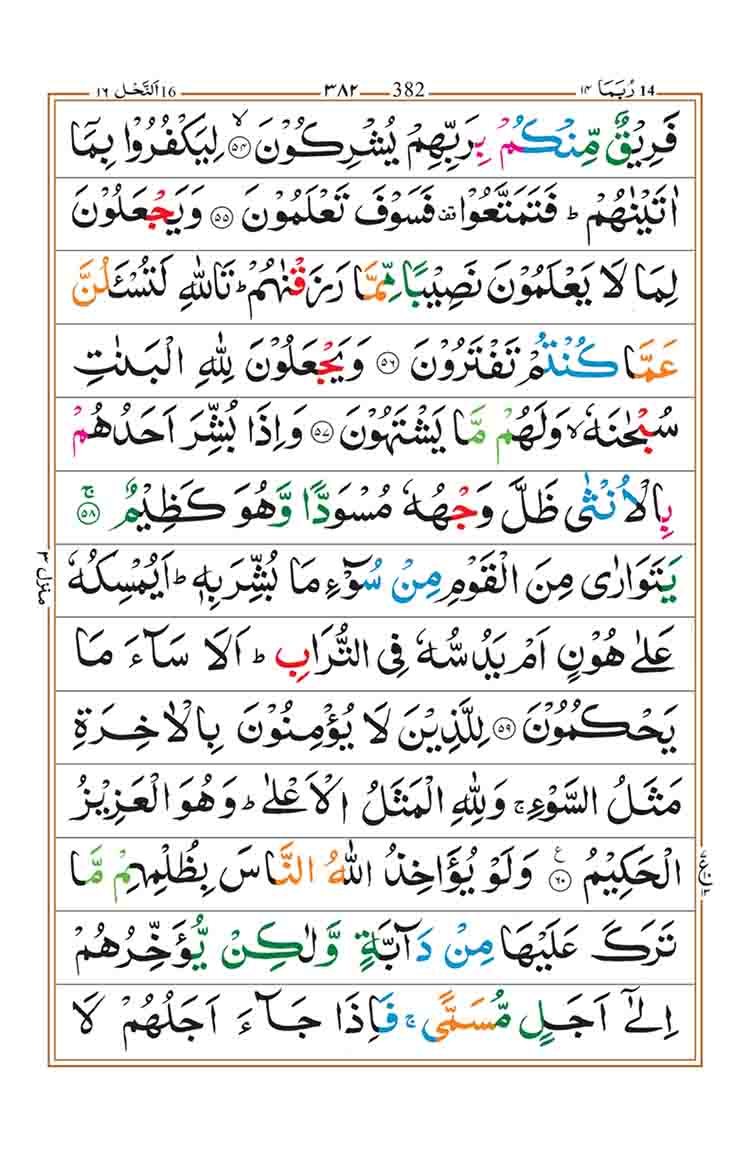 رُبَمَا 14 ١٤ 382 ٣٨٢ اَلنَّحْل 16 ١٦
فَرِيْقٌ مِّنْكُمْ بِرَبِّهِمْ يُشْرِكُوْنَ ۙ‏﴿۵۴﴾ لِيَكْفُرُوْا بِمَاۤ
اٰتَيْنٰهُمْ ؕ فَتَمَتَّعُوْا قف فَسَوْفَ تَعْلَمُوْنَ ﴿۵۵﴾ وَيَجْعَلُوْنَ
لِمَا لَا يَعْلَمُوْنَ نَصِيْبًا مِّمَّا رَزَقْنٰهُمْ ؕ تَاللّٰهِ لَتُسْـَٔلُنَّ
عَمَّا كُنْتُمْ تَفْتَرُوْنَ ﴿۵۶﴾ وَيَجْعَلُوْنَ لِلّٰهِ الْبَنٰتِ
سُبْحٰنَهٗ ۙ وَلَهُمْ مَّا يَشْتَهُوْنَ ﴿۵۷﴾ وَاِذَا بُشِّرَ اَحَدُهُمْ
بِالْاُنْثٰى ظَلَّ وَجْهُهٗ مُسْوَدًّا وَّهُوَ كَظِيْمٌ ۚ‏﴿۵۸﴾
يَتَوَارٰى مِنَ الْقَوْمِ مِنْ سُوْٓءِ مَا بُشِّرَ بِهٖ ؕ اَيُمْسِكُهٗ
عَلٰى هُوْنٍ اَمْ يَدُسُّهٗ فِى التُّرَابِ ؕ اَلَا سَآءَ مَا
يَحْكُمُوْنَ ﴿۵۹﴾ لِلَّذِيْنَ لَا يُؤْمِنُوْنَ بِالْاٰخِرَةِ
مَثَلُ السَّوْءِ ۚ وَلِلّٰهِ الْمَثَلُ الْاَعْلٰى ؕ وَهُوَ الْعَزِيْزُ
الْحَكِيْمُ ﴿۶۰﴾ ع وَلَوْ يُؤَاخِذُ اللّٰهُ النَّاسَ بِظُلْمِهِمْ مَّا
تَرَكَ عَلَيْهَا مِنْ دَآبَّةٍ وَّلٰكِنْ يُّؤَخِّرُهُمْ
اِلٰٓى اَجَلٍ مُّسَمًّى ۚ فَاِذَا جَآءَ اَجَلُهُمْ لَا
منزل ٣